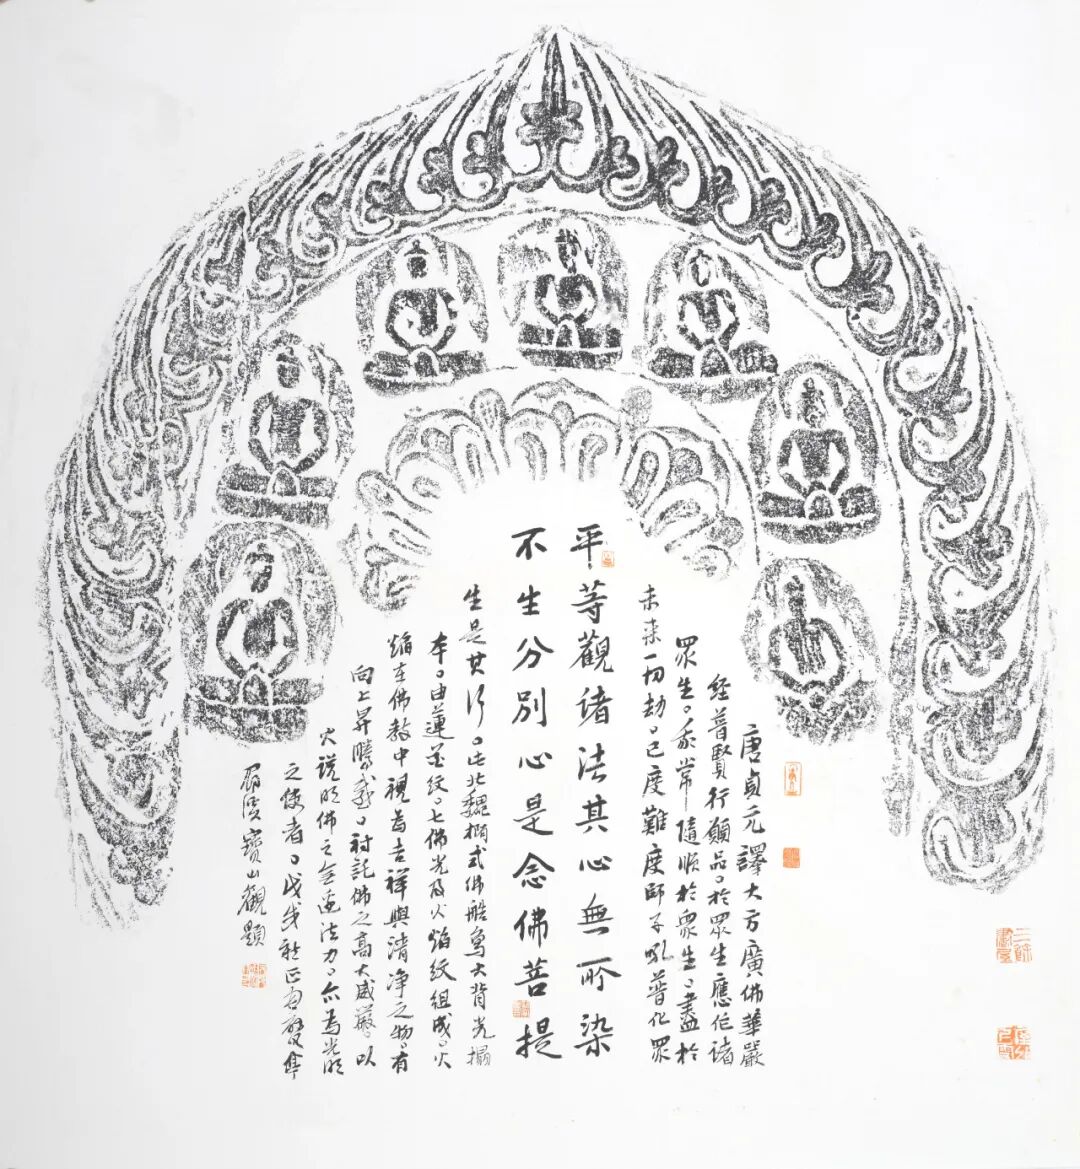 唐貞元譯大方廣佛華嚴
經普賢行願品。於眾生應作諸
眾生。我常隨順於眾生。盡於
未來一切劫。已度難度師子吼。普化眾
平等觀諸法其心無所染
不生分別心是念佛菩提
生是其行。此北魏橢式佛大背光搨
本。由蓮花紋。七佛光及火焰紋組成。火
焰在佛教中視為吉祥與清淨之物。有
向上昇騰義。襯託佛之高大威嚴。以
火說明佛之法力。亦為光明
之使者。戊戌新正
寶山觀題